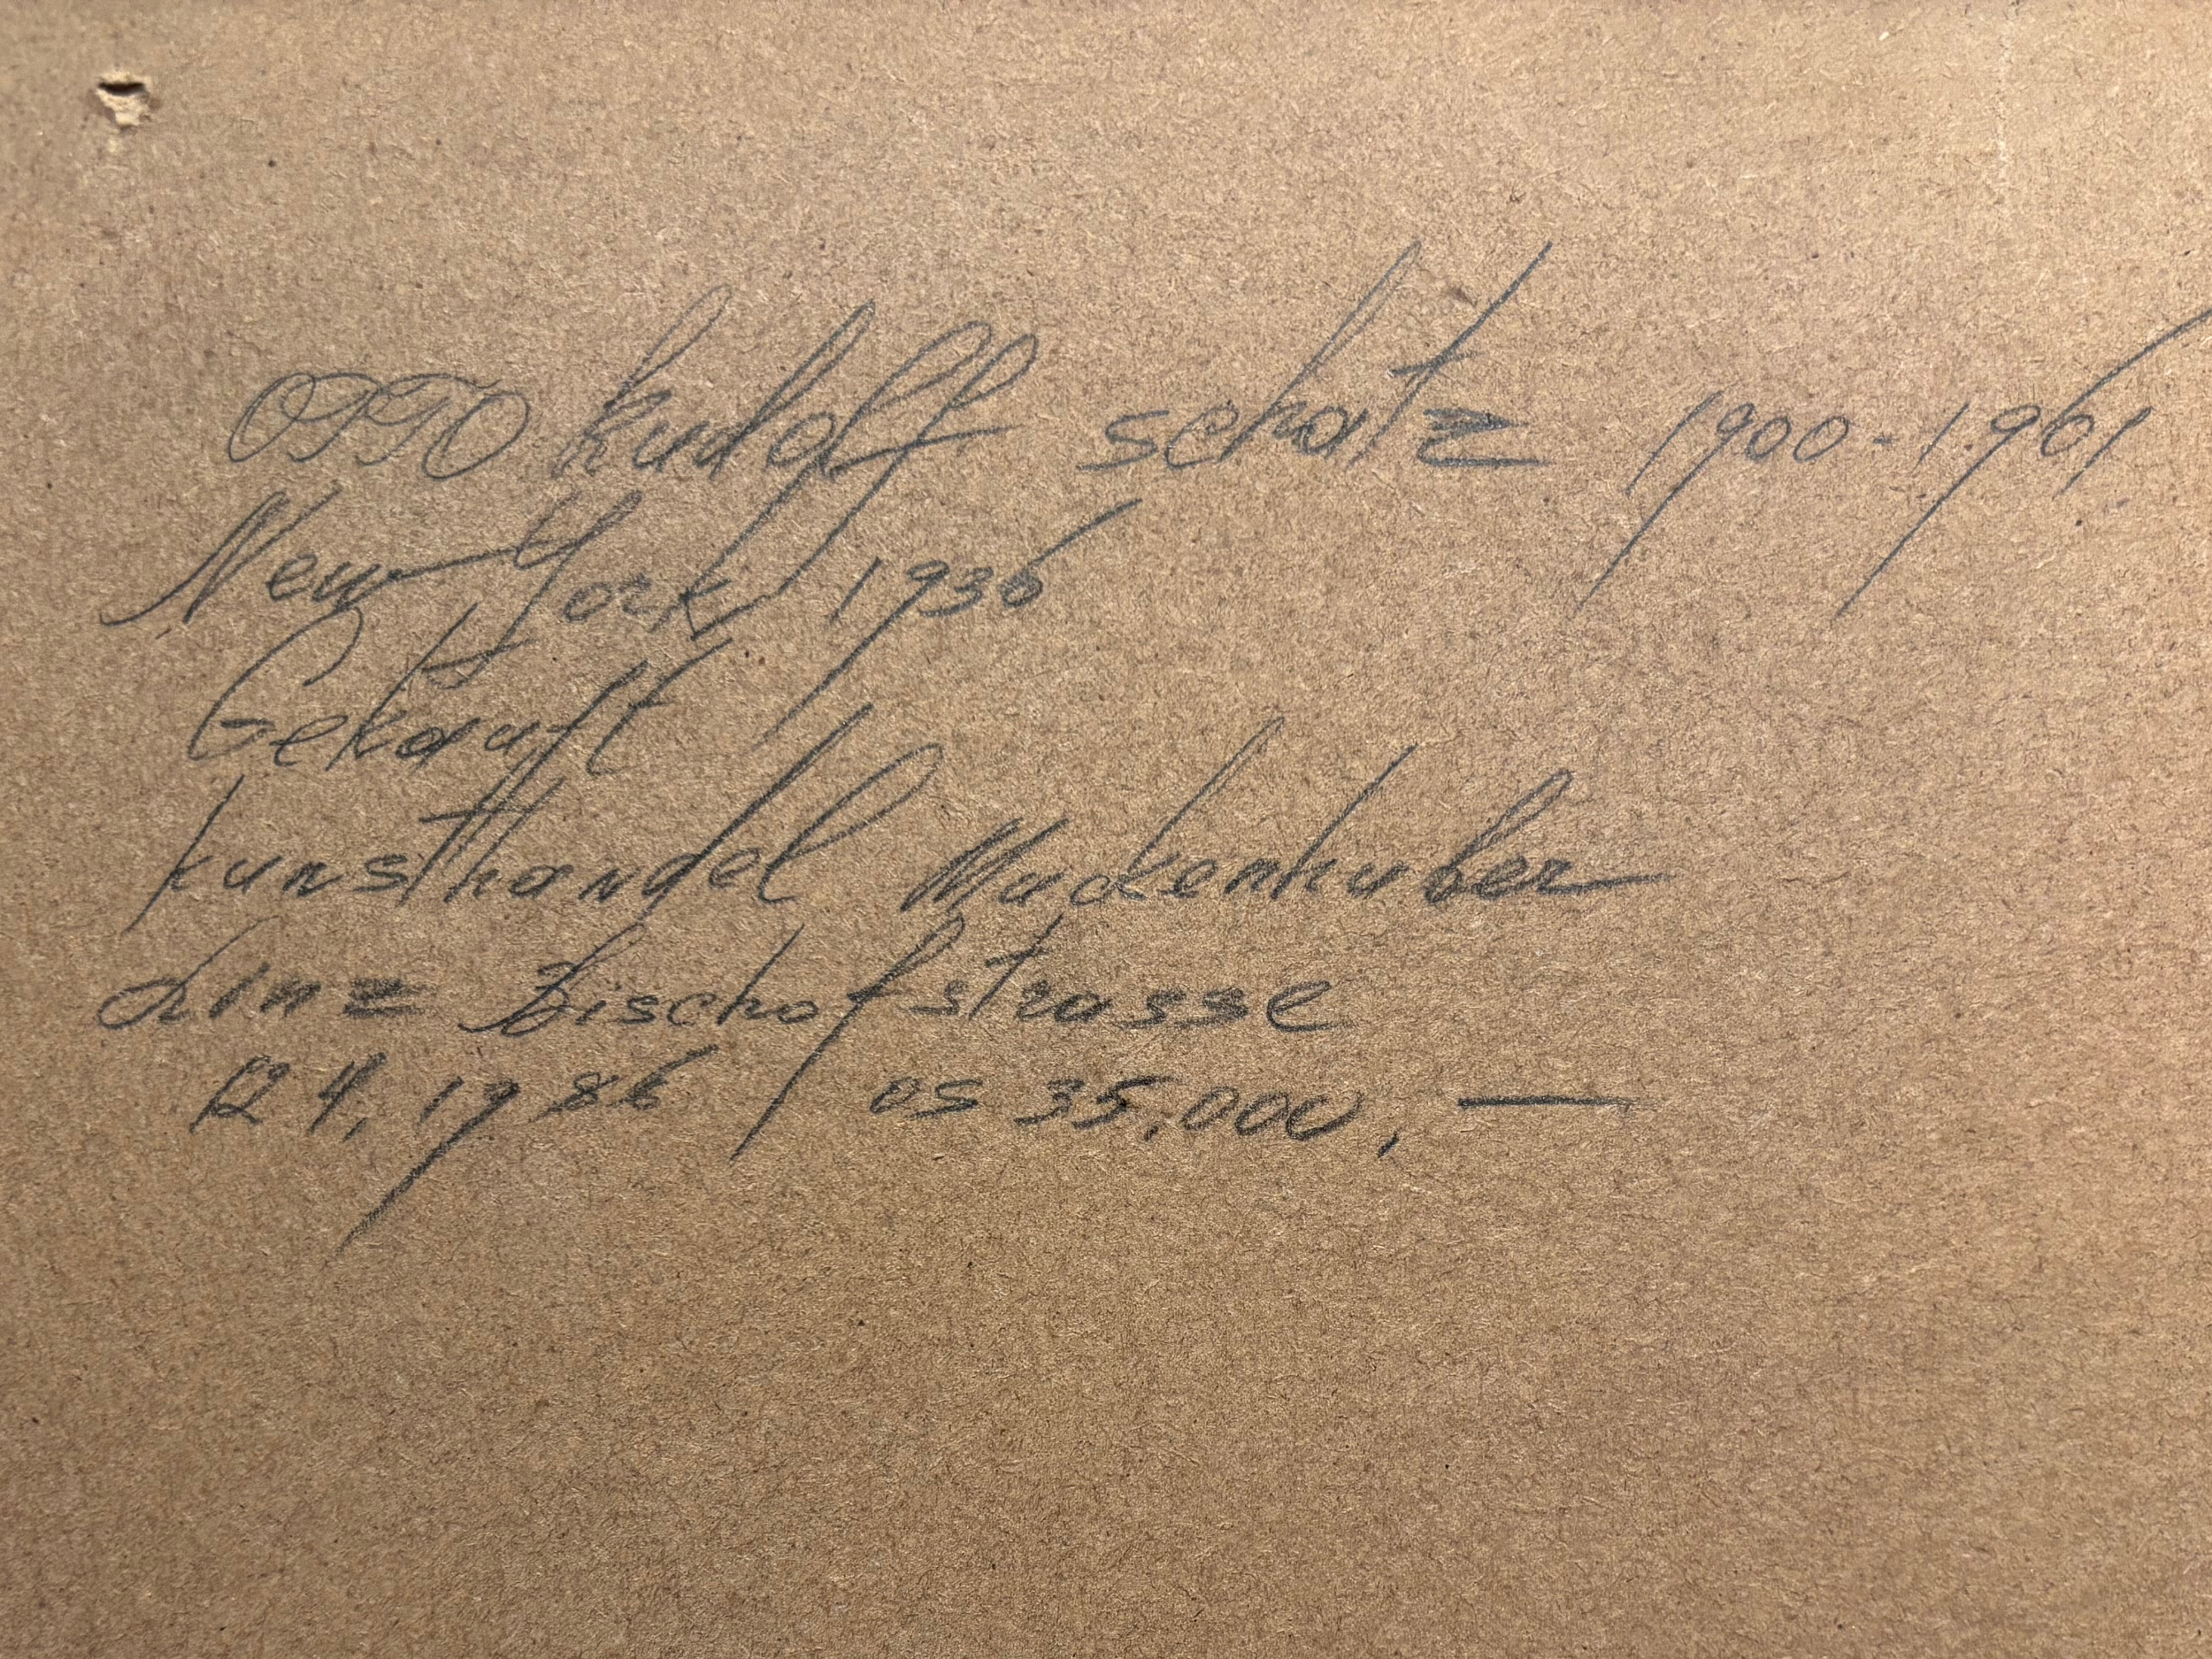 OTTO Rudolf Schatz 1900-1961
New York 1936
Gekauft
Kunsthandel Muckenhuber
Linz Bischofstrasse
12 4, 1986 ÖS 35,000,—